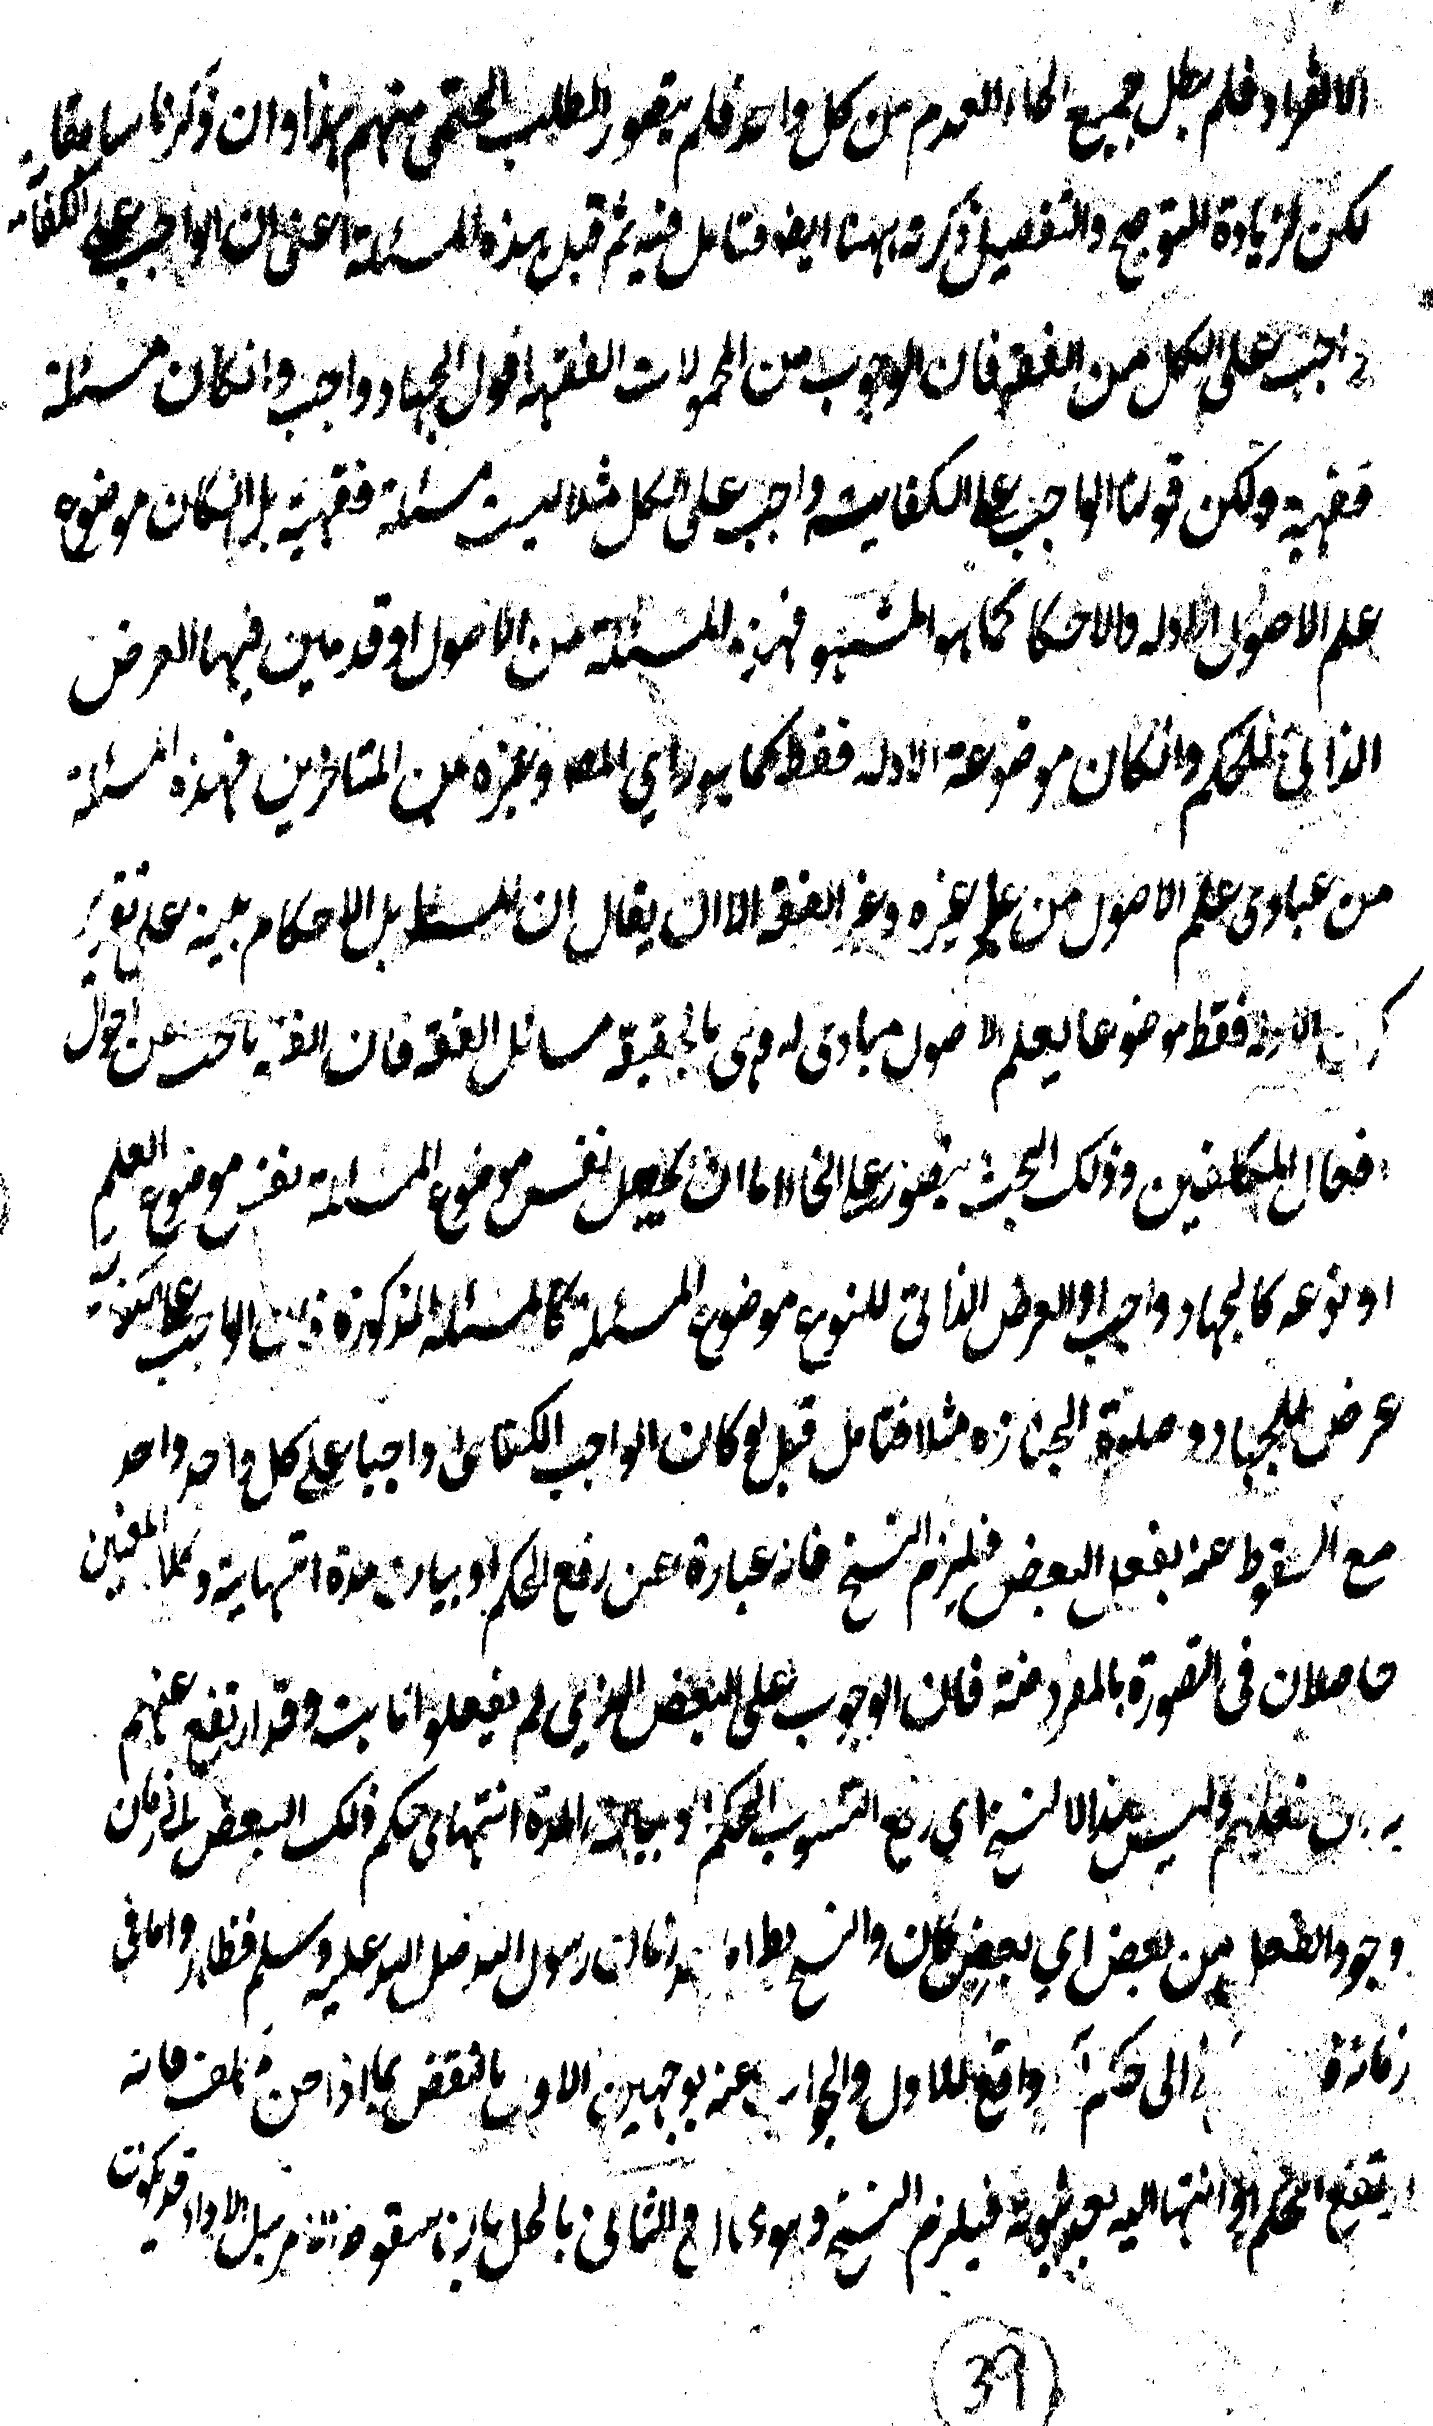 الانفراد فلم يطل جميع انحاء العدم من كل واحد فلم يتصور الطلب الحتمى منهم هذا وان ذكرنا سابقا
لكن لزيادة التوضيح والتفصيل ذكرته ههنا ايضا فتامل فيه ثم قيل هذه المسئلة اعنى ان الواجب على الكفاية
واجب على الكل من الفقه فان الوجوب من المحمولات الفقهية اقول الجهاد واجب وانكان مسئلة
فقهية ولكن قولنا الواجب على الكفاية واجب على الكل مثلا ليست مسئلة فقهية بل انكان موضوع
علم الاصول الادلة والاحكام كما هو المشهور فهذه المسئلة من الاصول اذ قد بين فيها العرض
الذاتى للحكم وانكان موضوعه الادلة فقط كما هو راي المصـ وغيره من المتاخرين فهذه المسئلة
من مبادى علم الاصول من علم غيره وغير الفقه الا ان يقال ان المسئلة بل الاحكام على تقدير
الادلة فقط موضوعا لعلم الاصول مبادى له وهى بالحقيقة مسائل الفقه فان الفقه باحث عن احوال
افعال المكلفين وذلك البحث يتصور على انحاء اما ان يجعل نفس موضوع المسئلة نفس موضوع العلم
او نوعه كالجهاد واجب او العرض الذاتى للنوع موضوع المسئلة كالمسئلة المذكورة فان الواجب على الكفاية
عرض للجهاد وصلوة الجنازة مثلا فتامل قيل لو كان الواجب الكفائى واجبا على كل واحد واحد
مع السقوط عنه بفعل البعض فيلزم النسخ فانه عبارة عن رفع الحكم او بيان مدة انتهائية وكلا المعنيين
حاصلان فى الصورة المفروضة فان الوجوب على البعض الذي لم يفعلوا ثابت وقد ارتفع عنهم
بدون فعلهم وليس هذا الا لنسخ اي رفع الحكم او بيان المدة انتهاى حكم ذلك البعض الى زمان
وجود الفعل من بعض اي بعض كان والنسخ زمان رسول الله صلى الله عليه وسلم فظاهر واما فى
زمانه الى حكم واقع للاول والجواب عنه بوجهين الاول بالنقض بما اذا من مكلف فانه
ارتفع الحكم او انتها اليه فيلزم النسخ وهو كما ترى الثانى بالحل بان سقوط الامر قبل الاداء قد يكون
39